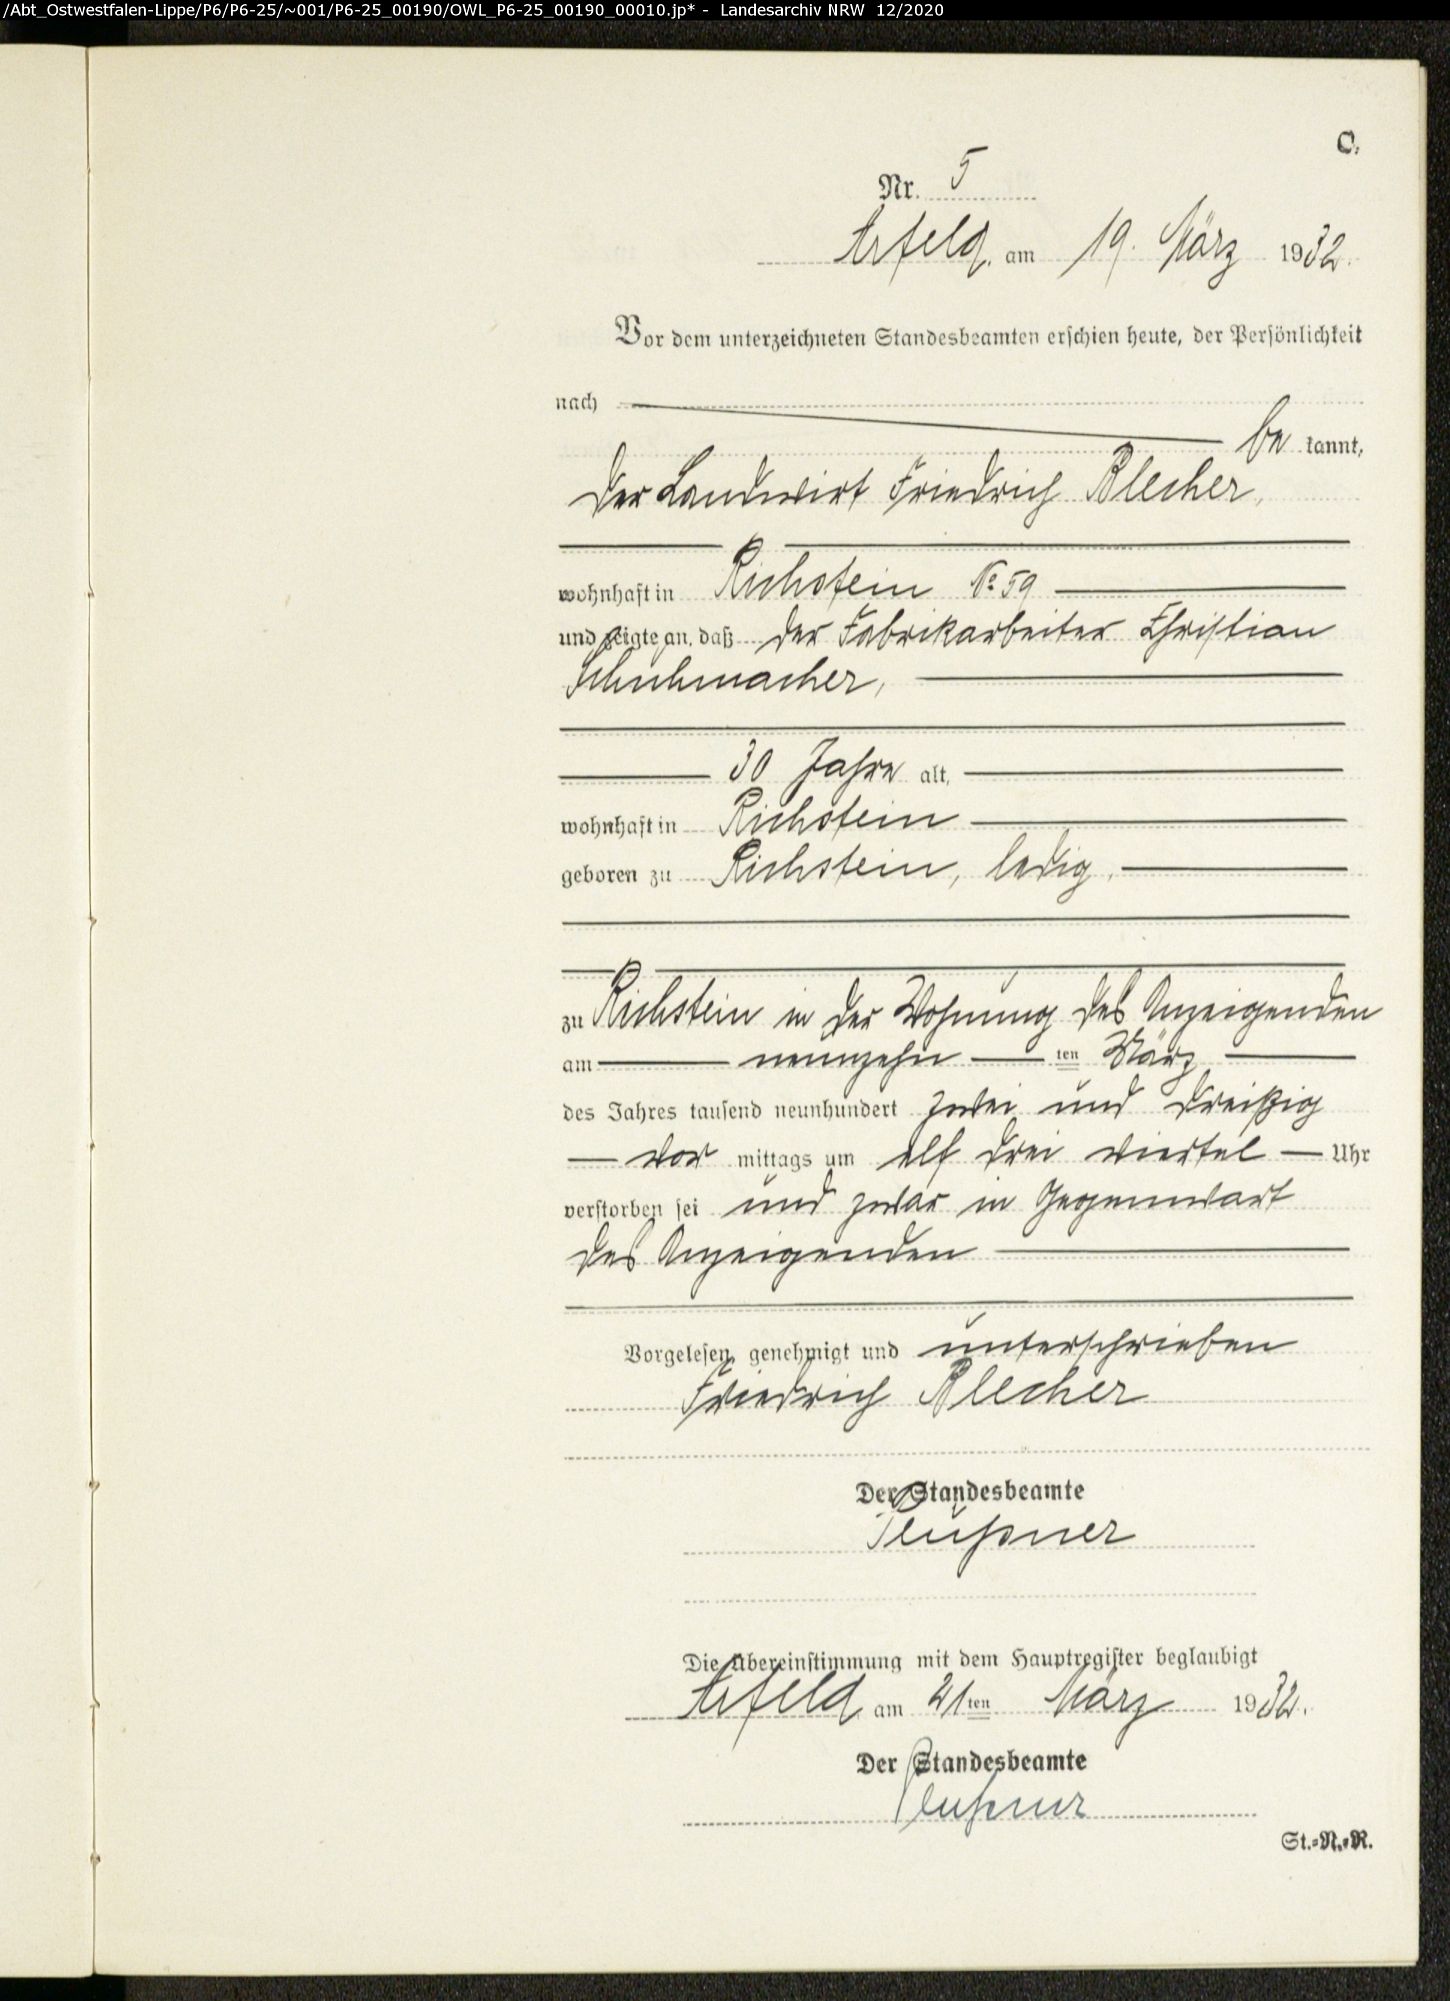 /Abt_Ostwestfalen-Lippe/P6/P6-25/~001/P6-25_00190/OWL_P6-25_00190_00010.jp* - Landesarchiv NRW 12/2020
C.
Nr. 5
Arfeld, am 19. März 1932.
Vor dem unterzeichneten Standesbeamten erschien heute, der Persönlichkeit
nach
be kannt,
der Landwirt Friedrich Blecher,
wohnhaft in Richstein No 59
und zeigte an, daß der Fabrikarbeiter Christian
Schuhmacher,
30 Jahre alt,
wohnhaft in Richstein
geboren zu Richstein, ledig.
zu Richstein in der Wohnung des Anzeigenden
am neunzehn ten März
des Jahres tausend neunhundert zwei und dreißig
vor mittags um elf drei viertel Uhr
verstorben sei und zwar in Gegenwart
des Anzeigenden
Vorgelesen, genehmigt und unterschrieben
Friedrich Blecher
Der Standesbeamte
Die Übereinstimmung mit dem Hauptregister beglaubigt
Arfeld am 21ten März 1932.
Der Standesbeamte
St.-N.-R.